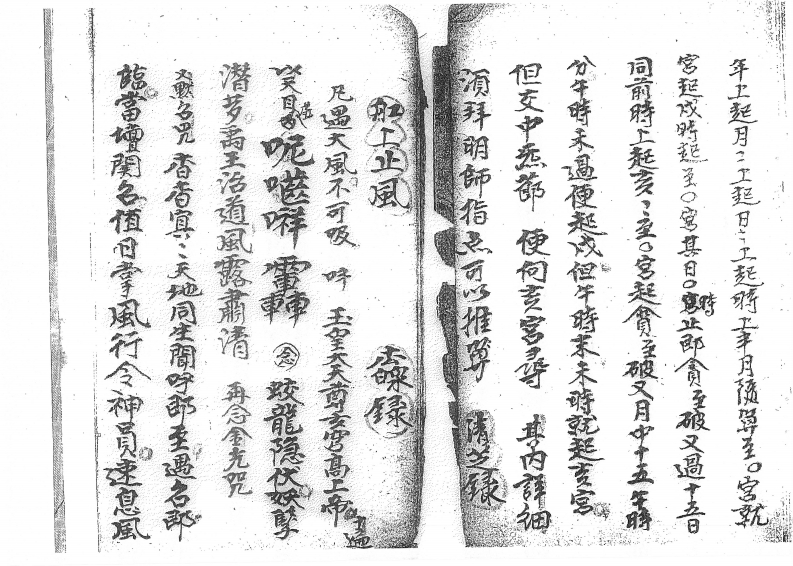 年上起月〻上起日〻上起時上年月隨算至〇宮就
宮起戌時起至〇宮其日〇宮時止即貪至破又過十五日
同前時上起亥〻至〇宮起貪至破又月中十五午時
分午時未過便起戌但午時末未時就起亥宮
但交中炁節 便向亥宮尋 其內詳細
須拜明師指点可以推算 清芝錄
船上止風 錄
凡遇大風不可吸 吁 玉皇大天尊玄穹高上帝 遍
呢 雷轟 念 蛟龍隱伏妖孽
潛 禹王治道風露肅清 再念金光咒
又默念咒杳杳冥〻天地同生聞呼即至遇名即
臨當壇関名值日掌風行令神員速息風